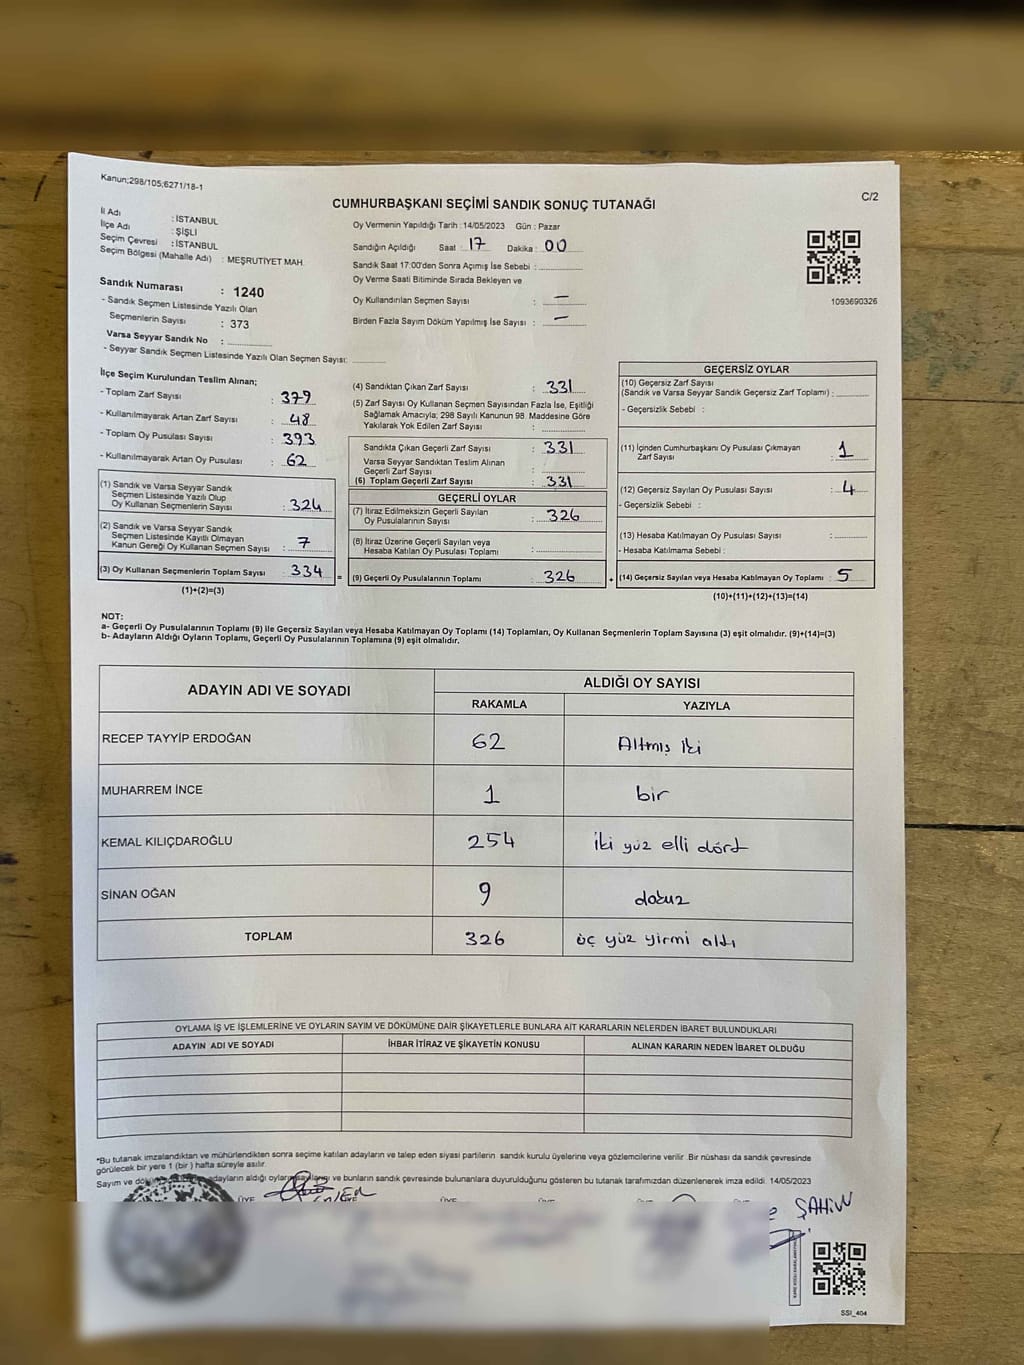 Kanun;298/105;6271/18-1
CUMHURBAŞKANI SEÇİMİ SANDIK SONUÇ TUTANAĞI
C/2
İl Adı : İSTANBUL
İlçe Adı : ŞİŞLİ
Seçim Çevresi : İSTANBUL
Seçim Bölgesi (Mahalle Adı) : MEŞRUTİYET MAH.
Sandık Numarası : 1240
- Sandık Seçmen Listesinde Yazılı Olan
Seçmenlerin Sayısı : 373
Varsa Seyyar Sandık No :
- Seyyar Sandık Seçmen Listesinde Yazılı Olan Seçmen Sayısı:
Oy Vermenin Yapıldığı Tarih :14/05/2023 Gün : Pazar
Sandığın Açıldığı Saat : 17 Dakika : 00
Sandık Saat 17:00'den Sonra Açımış İse Sebebi :
Oy Verme Saati Bitiminde Sırada Bekleyen ve
Oy Kullandırılan Seçmen Sayısı : —
Birden Fazla Sayım Döküm Yapılmış İse Sayısı : —
1093690326
İlçe Seçim Kurulundan Teslim Alınan;
- Toplam Zarf Sayısı : 379
- Kullanılmayarak Artan Zarf Sayısı : 48
- Toplam Oy Pusulası Sayısı : 393
- Kullanılmayarak Artan Oy Pusulası : 62
(1) Sandık ve Varsa Seyyar Sandık
Seçmen Listesinde Yazılı Olup
Oy Kullanan Seçmenlerin Sayısı : 324
(2) Sandık ve Varsa Seyyar Sandık
Seçmen Listesinde Kayıtlı Olmayan
Kanun Gereği Oy Kullanan Seçmen Sayısı : 7
(3) Oy Kullanan Seçmenlerin Toplam Sayısı : 334 =
(1)+(2)=(3)
(4) Sandıktan Çıkan Zarf Sayısı : 331
(5) Zarf Sayısı Oy Kullanan Seçmen Sayısından Fazla İse, Eşitliği
Sağlamak Amacıyla; 298 Sayılı Kanunun 98. Maddesine Göre
Yakılarak Yok Edilen Zarf Sayısı :
Sandıkta Çıkan Geçerli Zarf Sayısı : 331
Varsa Seyyar Sandıktan Teslim Alınan
Geçerli Zarf Sayısı :
(6) Toplam Geçerli Zarf Sayısı : 331
GEÇERLİ OYLAR
(7) İtiraz Edilmeksizin Geçerli Sayılan
Oy Pusulalarının Sayısı : 326
(8) İtiraz Üzerine Geçerli Sayılan veya
Hesaba Katılan Oy Pusulası Toplamı :
(9) Geçerli Oy Pusulalarının Toplamı : 326 +
GEÇERSİZ OYLAR
(10) Geçersiz Zarf Sayısı
(Sandık ve Varsa Seyyar Sandık Geçersiz Zarf Toplamı) :
- Geçersizlik Sebebi :
(11) İçinden Cumhurbaşkanı Oy Pusulası Çıkmayan
Zarf Sayısı : 1
(12) Geçersiz Sayılan Oy Pusulası Sayısı : 4
- Geçersizlik Sebebi :
(13) Hesaba Katılmayan Oy Pusulası Sayısı :
- Hesaba Katılmama Sebebi :
(14) Geçersiz Sayılan veya Hesaba Katılmayan Oy Toplamı : 5
(10)+(11)+(12)+(13)=(14)
NOT:
a- Geçerli Oy Pusulalarının Toplamı (9) ile Geçersiz Sayılan veya Hesaba Katılmayan Oy Toplamı (14) Toplamları, Oy Kullanan Seçmenlerin Toplam Sayısına (3) eşit olmalıdır. (9)+(14)=(3)
b- Adayların Aldığı Oyların Toplamı, Geçerli Oy Pusulalarının Toplamına (9) eşit olmalıdır.
ADAYIN ADI VE SOYADI ALDIĞI OY SAYISI
RAKAMLA YAZIYLA
RECEP TAYYİP ERDOĞAN 62 Altmış iki
MUHARREM İNCE 1 bir
KEMAL KILIÇDAROĞLU 254 iki yüz elli dört
SİNAN OĞAN 9 dokuz
TOPLAM 326 üç yüz yirmi altı
OYLAMA İŞ VE İŞLEMLERİNE VE OYLARIN SAYIM VE DÖKÜMÜNE DAİR ŞİKAYETLERLE BUNLARA AİT KARARLARIN NELERDEN İBARET BULUNDUKLARI
ADAYIN ADI VE SOYADI İHBAR İTİRAZ VE ŞİKAYETİN KONUSU ALINAN KARARIN NEDEN İBARET OLDUĞU
*Bu tutanak imzalandıktan ve mühürlendikten sonra seçime katılan adayların ve talep eden siyasi partilerin sandık kurulu üyelerine veya gözlemcilerine verilir. Bir nüshası da sandık çevresinde
görülecek bir yere 1 (bir ) hafta süreyle asılır.
Sayım ve adayların aldığı oyların ve bunların sandık çevresinde bulunanlara duyurulduğunu gösteren bu tutanak tarafımızdan düzenlenerek imza edildi. 14/05/2023
ÜYE
ŞAHİN
SSI_404